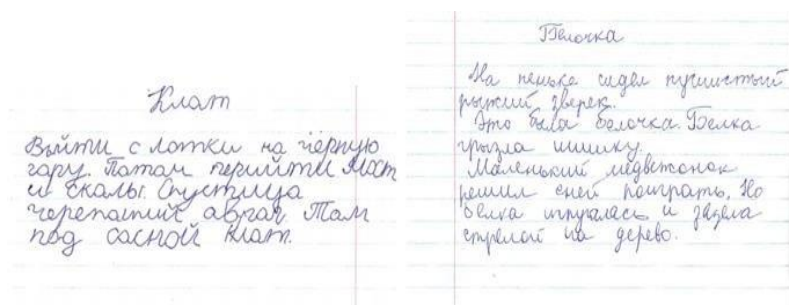 Клат
Выйти с лотки на чёрную
гару. Патам перийти мост
и скалы. Спустица
черепаший авраг Там
под сасной клат.
Белочка
На пеньке сидел пушистый
рыжий зверек.
Это была белочка. Белка
грызла шишку.
Маленький медвежонок
решил сней поиграть. Но
белка испугалась и
стрелой на дерево.